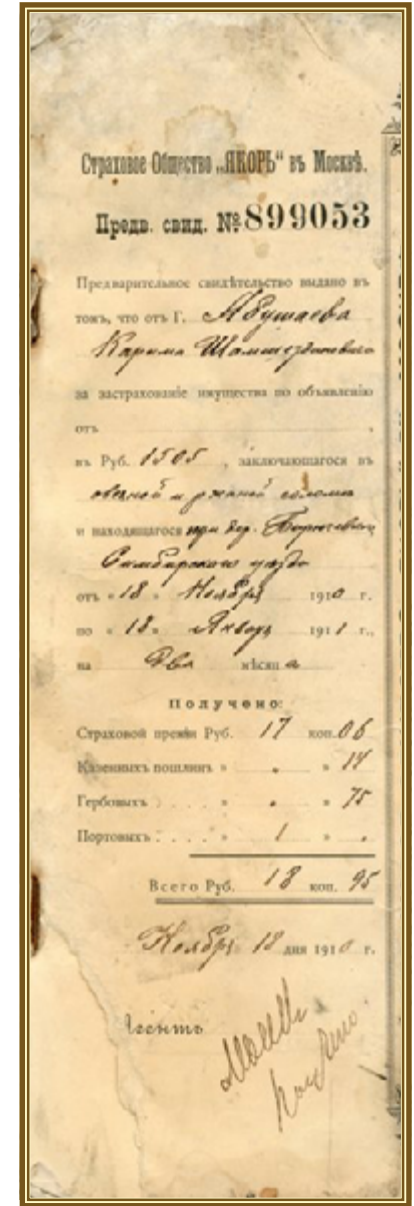 Страховое Общество „ЯКОРЬ“ въ Москвѣ.
Предв. свид. № 899053
Предварительное свидѣтельство выдано въ
томъ, что отъ Г. Абушаева
Карима
за застрахованіе имущества по объявленію
отъ ,
въ Руб. 1505 , заключающагося въ
овсяной и ржаной соломы
и находящагося при дер.
Симбирскаго уѣзда
отъ « 18 » Ноября 1910 г.
по « 18 » Января 1911 г.,
на два мѣсяца
Получено:
Страховой преміи Руб. 17 коп. 06
Казенныхъ пошлинъ » . » 14
Гербовыхъ . . . » . » 75
Портовыхъ . . . . » 1 » .
Всего Руб. 18 коп. 95
Ноября 18 дня 1910 г.
Агентъ